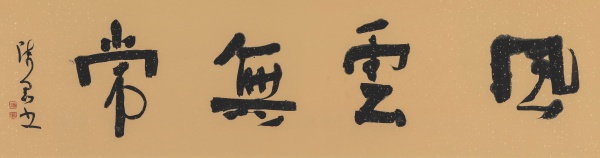 風雲無常